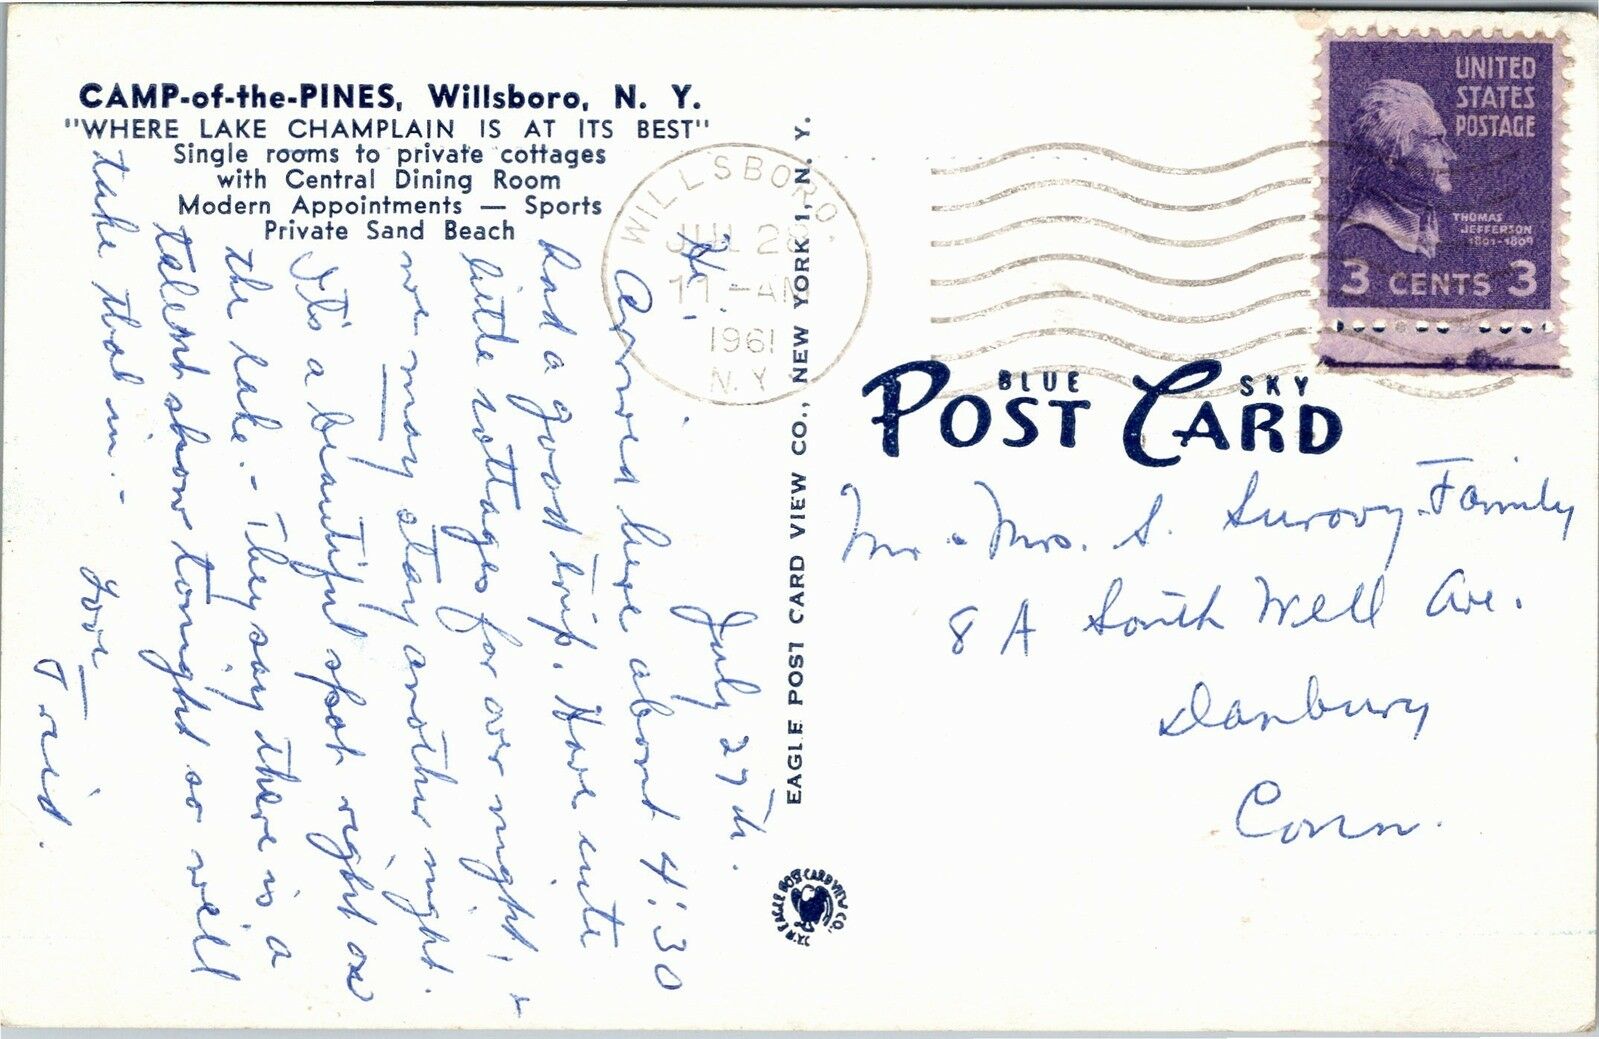 CAMP-of-the-PINES, Willsboro, N. Y.
"WHERE LAKE CHAMPLAIN IS AT ITS BEST"
Single rooms to private cottages
with Central Dining Room
Modern Appointments — Sports
Private Sand Beach
July 27th.
Hi:
Arrived here about 4:30
had a good trip. Have cute
little cottages for over night, &
we may stay another night.
It's a beautiful spot right on
the lake. - They say there is a
talent show tonight so will
take that in. -
Love
EAGLE POST CARD VIEW CO., NEW YORK 1, N. Y.
EAGLE POST CARD VIEW CO.
WILLSBORO,
JUL 28
11 - AM
1961
N. Y.
UNITED
STATES
POSTAGE
THOMAS
JEFFERSON
1801-1809
3 CENTS 3
BLUE SKY
POST CARD
Mr & Mrs. S. Surovy-Family
8 A South Well Ave.
Danbury
Conn.